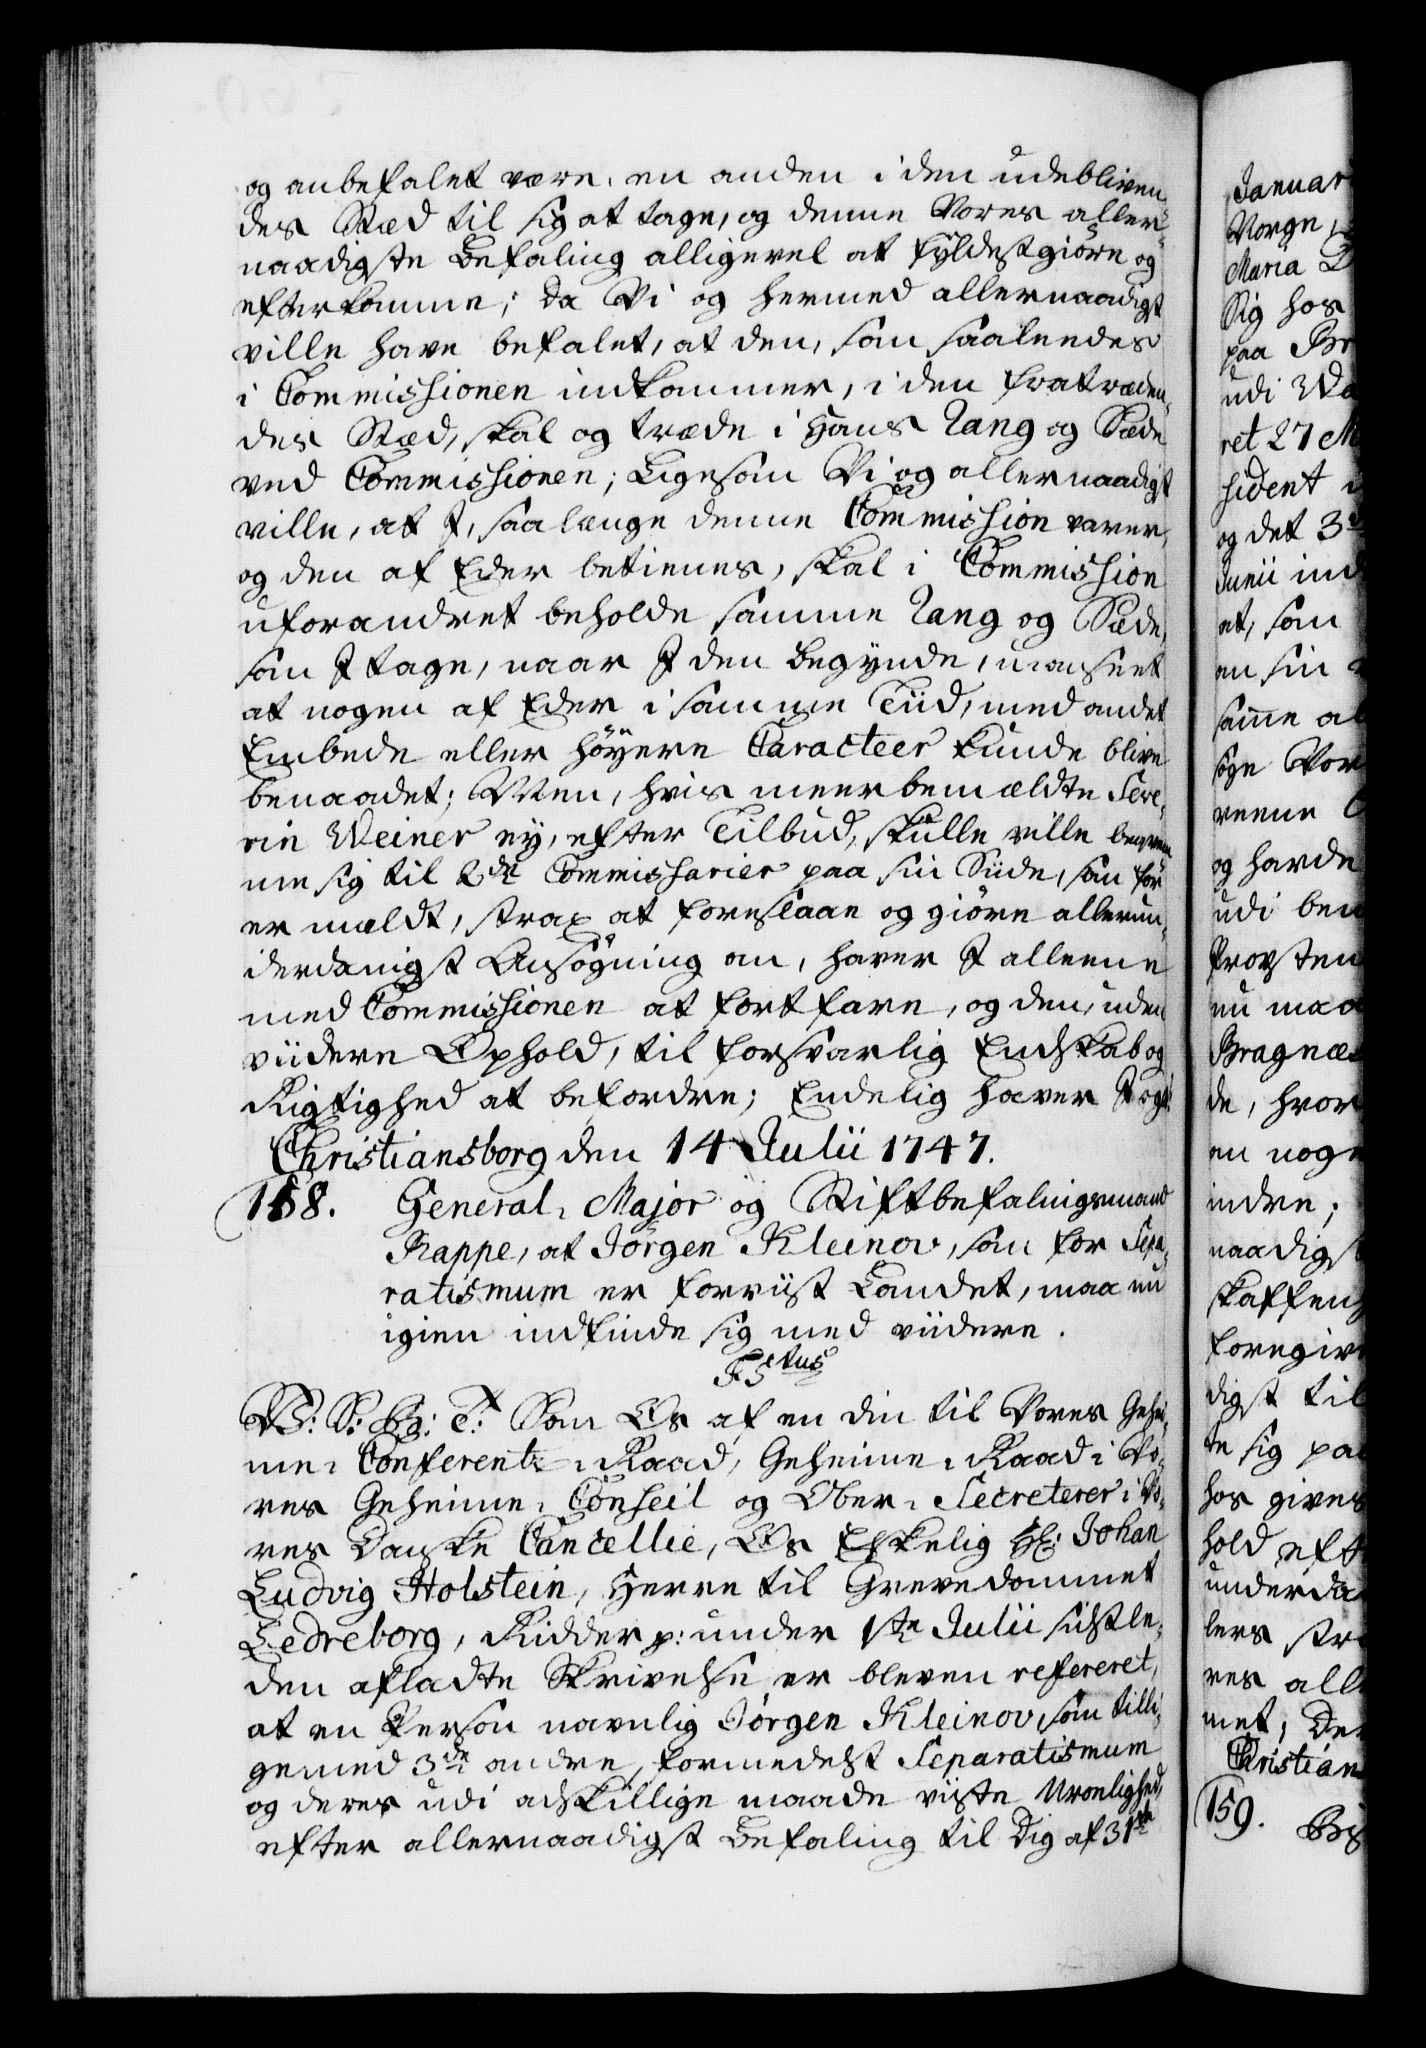 og anbefalet være, en anden i den udebliven¬
des Stæd til sig at tage, og denne Vores aller¬
naadigste Befaling alligevel at fyldestgiøre og
efterkomme; da Vi og hermed allernaadigst
ville have befalet, at den, som saaleedes
i Commissionen indkommer, i den fratræden¬
des Stæd, skal og træde i Hans Rang og Sæde
ved Commissionen; Ligesom Vi og allernaadigst
ville, at I, saalænge denne Commission varer,
og den af Eder betienes, skal i Commission
uforandret beholde samme Rang og Sæde,
som I tage, naar I den begynde, uanseet
at nogen af Eder i samme Tiid, med andet
Embede eller høyere Caracteer kunde blive
benaadet; Men, hvis meerbemældte Seve¬
rin Weiner ey, efter Tilbud, skulle ville beqvem¬
me sig til 2de Commissarier paa sin Siide, som før
er mældt, strax at foreslaae og giøre allerun¬
derdanigst Ansøgning om, haver I alleene
med Commissionen at fortfare, og den, uden
viidere Ophold, til forsvarlig Endskab og
Rigtighed at befordre; Endelig haver I og
Christiansborg den 14 Julii 1747.
158. General-Major og Stiftbefalingsmand
Rappe, at Jörgen Kleinov, som for Sepa¬
ratismum er forviist Landet, maa nu
igien indfinde sig med viidere.
F 5tus
V: S: G: T: Som Os af en din til Vores Gehei¬
me-Conferentz-Raad, Geheime-Raad i Vo¬
res Geheime-Conseil og Ober-Secreterer i Vo¬
res Danske Cancellie, Os Elskelig Hr: Johan
Ludvig Holstein, Herre til Grevedømmet
Ledreborg, Ridder p: under 1ste Julii sidstle¬
den afladte Skrivelse er bleven refereret,
at en Person navnlig Jörgen Kleinov, som tilli¬
gemed 3de andre, formedelst Separatismum
og deres udi adskillige maade viiste Uroelighed,
efter allernaadigst Befaling til Dig af 31te
Januar
Vorge,
Maria
Sig hos
paa Br
udi Wa
ret 27 M
sident
og det 3
Junii ind
et, som
en sin
samme al
søge Vor
reene
og havde
udi ben
Provsten
nu maa
Bragnæs
de, hvor
en noge
indre;
naadigst
skaffen
foregiv
digst til
te sig paa
hos gives
hold eft
underda
lers stra
res alle
met; De
Christian
159. Bis